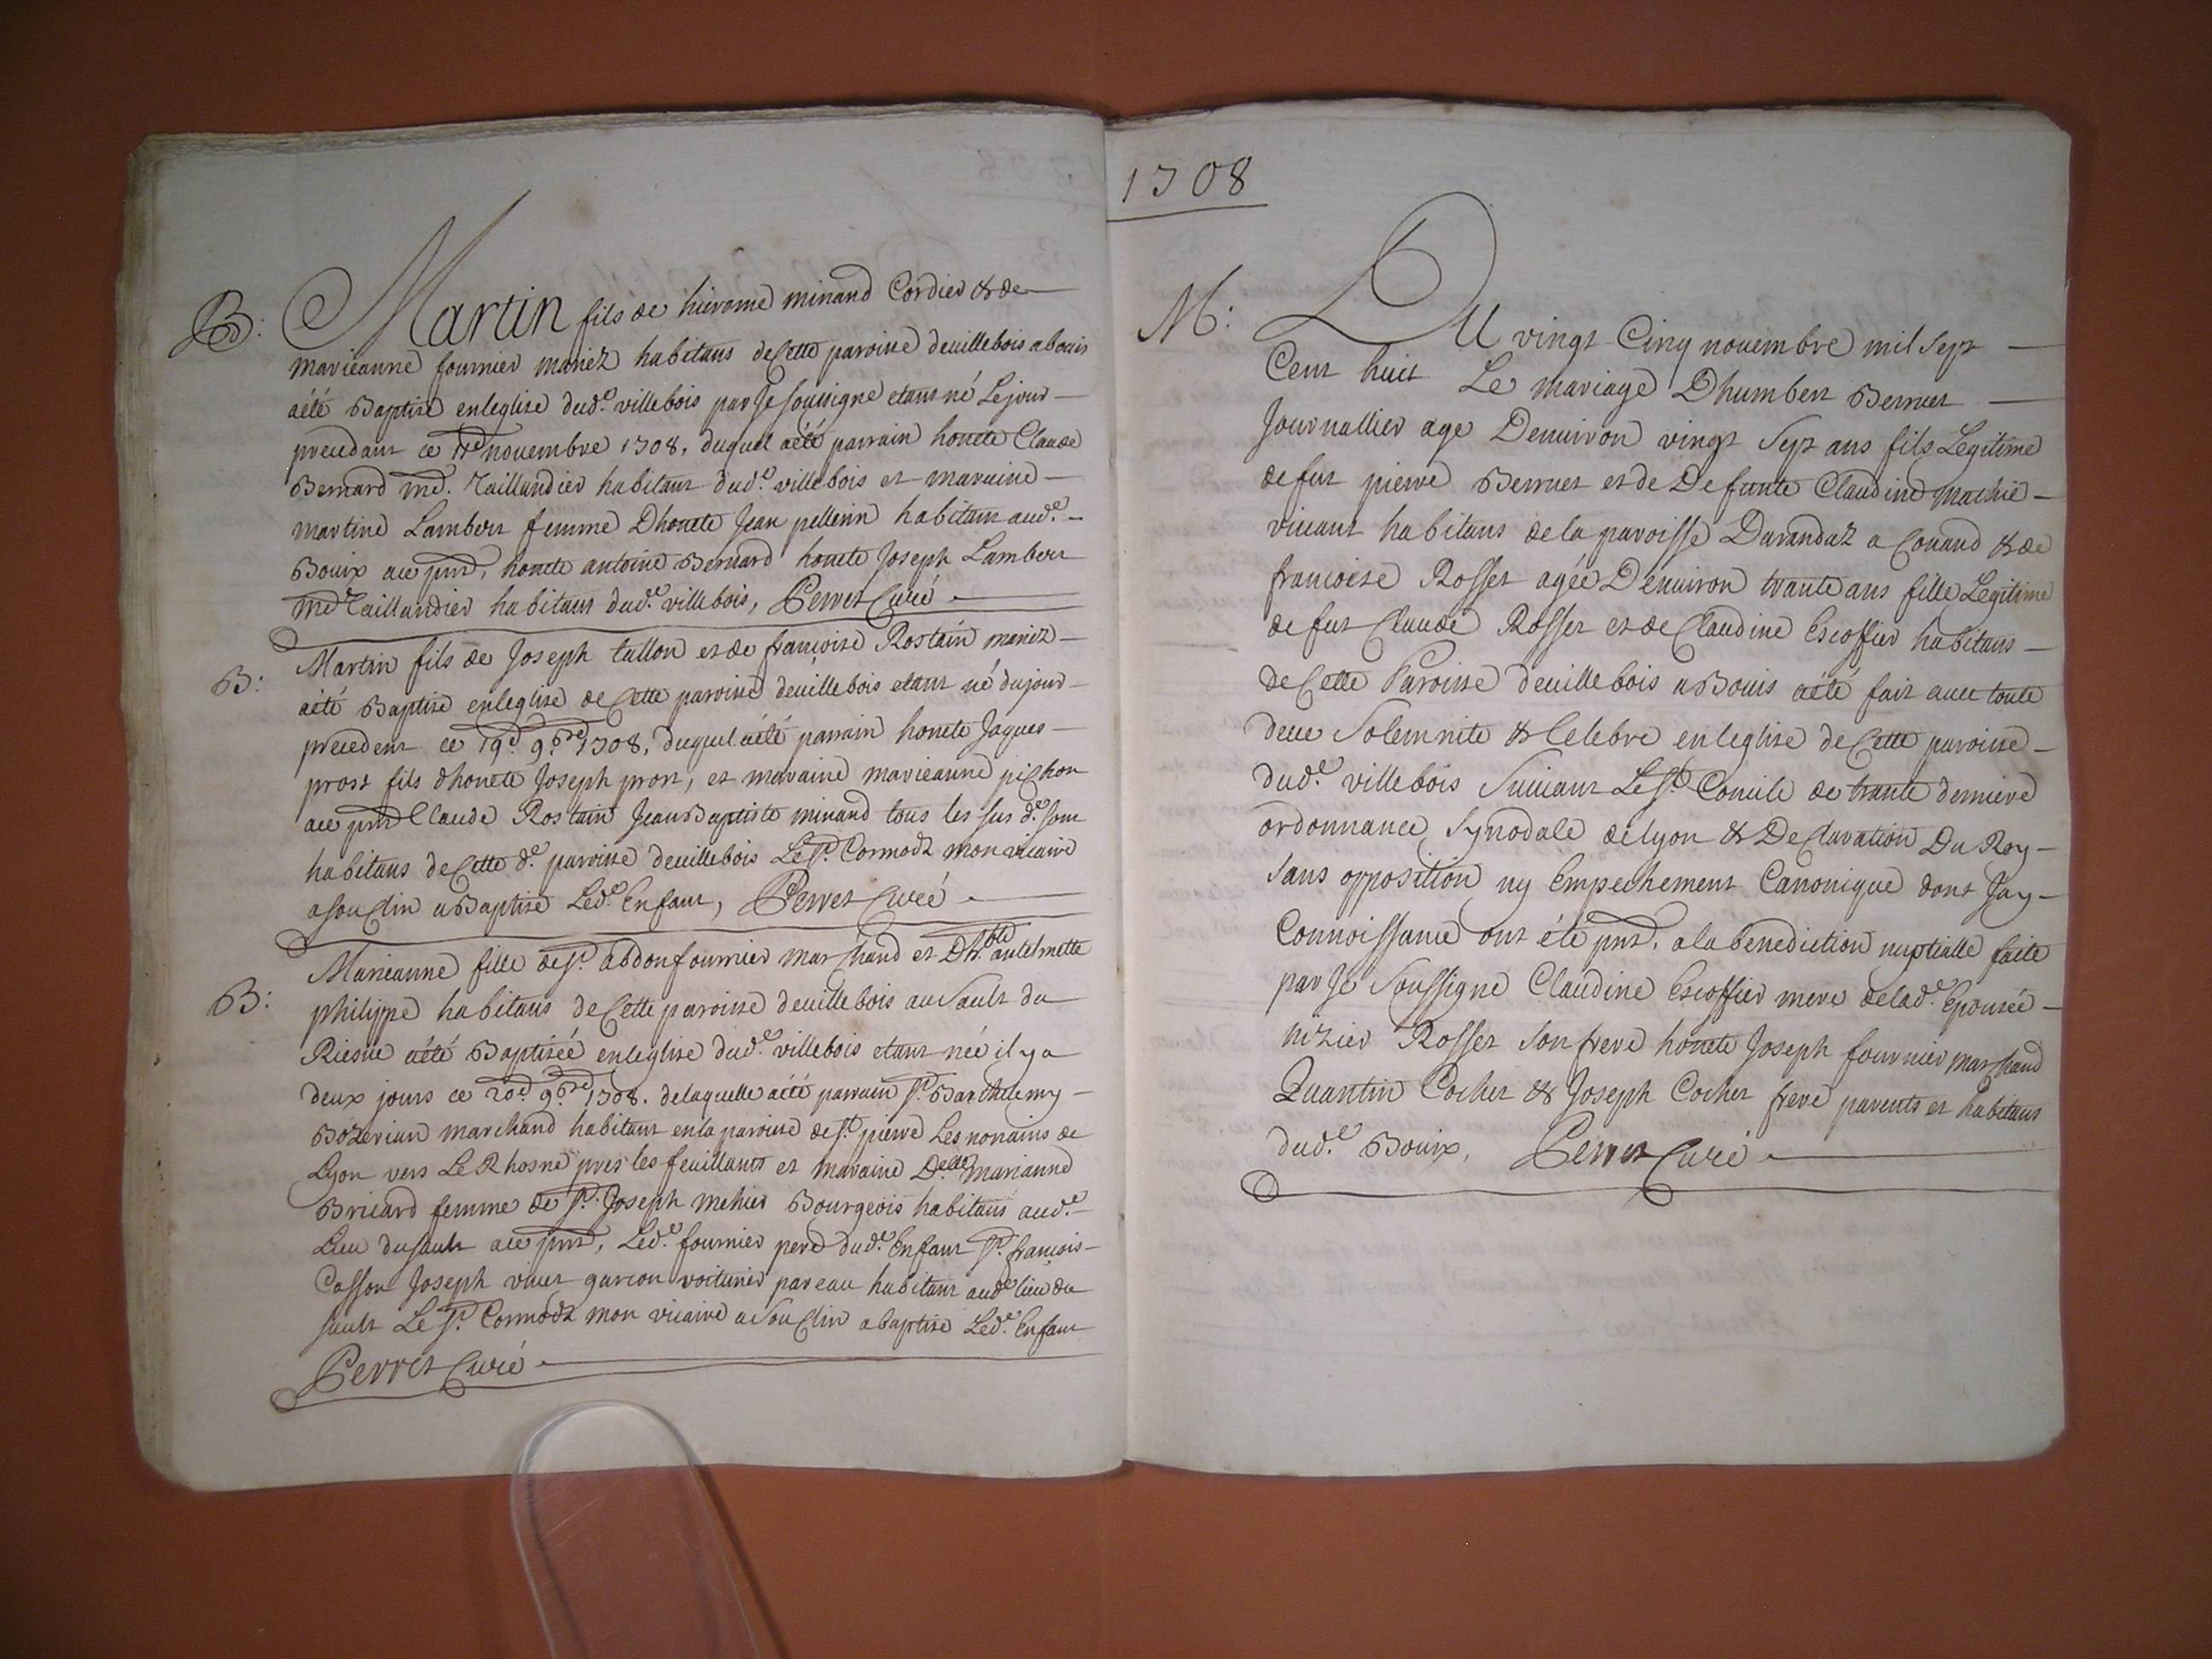 B: Martin fils de hierome minand Cordier & de
marieanne fournier mariez habitans de Cette paroisse deuillebois a bouis
aété Baptisé en leglise dud.e villebois par Je soussigne etant né Le jour
precedant ce novembre 1708. duquel aété parrain honete Claude
Bernard md. Taillandier habitant dud.e villebois et maraine
martine Lambert femme Dhonete Jean pellerin habitant aud.e
Bouix ace pnt, honete antoine Bernard honete Joseph Lambert
md Taillandier habitans dud.e villebois, Perret Curé
B: Martin fils de Joseph tallon et de francoise Rostain mariez
aété Baptisé en leglise de Cette paroisse deuillebois etant né du jour
precedent ce 19e 9bre 1708. duquel aété parrain honete Jaques
prost fils dhonete Joseph prost, et maraine marieanne pichon
ace pnt Claude Rostain Jean Baptiste minand tous les sus d.e sont
habitans de Cette d.e paroisse deuillebois Le Sr. Cormodz mon vicaire
a souclin a Baptisé Led.e Enfant, Perret Curé
B: Marieanne fille de Sr. abdon fournier marchand et Dh.ble antelmette
philippe habitans de Cette paroisse deuillebois au Sault du
Riesne aété Baptiséé en leglise dud.e villebois etant néé il y a
deux jours ce 20e 9bre 1708. de laquelle aété parrain Sr. Barthelemy
Bozerian marchand habitant en la paroisse de St. pierre Les nonains de
Lyon vers Le Rhosne pres les feuillants et maraine D.elle marianne
Bricard femme de Sr. Joseph mehier Bourgeois habitans aud.e
Lieu du sault ace pnt, Led.e fournier pere dud.e Enfant Sr. francois
Casson Joseph vinet garcon voiturier par eau habitant aud.e lieu du
sault Le Sr. Cormodz mon vicaire a Souclin a baptisé Led.e Enfant
Perret Curé
1708
M: Du vingt Cinq nouembre mil Sept
Cent huit Le mariage Dhumbert Berruet
Journallier age Denuiron vingt Sept ans fils Legitime
de fut pierre Berruet et de Defunte Claudine mathie
viuant habitans de la paroisse Darandaz a Conand & de
francoise Rosset agée Denuiron trante ans fille Legitime
de fut Claude Rosset et de Claudine Escoffier habitans
de Cette Paroisse deuillebois a Bouis aété fait auec toute
deue Solemnite & Celebré en leglise de Cette paroisse
dud.e villebois Suiuant Le St. Concile de trante derniere
ordonnance Synodale de lyon & Declaration Du Roy
Sans opposition ny Empechement Canonique dont Jay
Connoissance ont été pnt. a la benediction nuptialle faite
par Je Soussigne Claudine Escoffier mere de lad.e Epouséé
nizier Rosset son frere honete Joseph fournier marchand
Quantin Cochet & Joseph Cochet frere parents et habitans
dud.e Bouix, Perret Curé